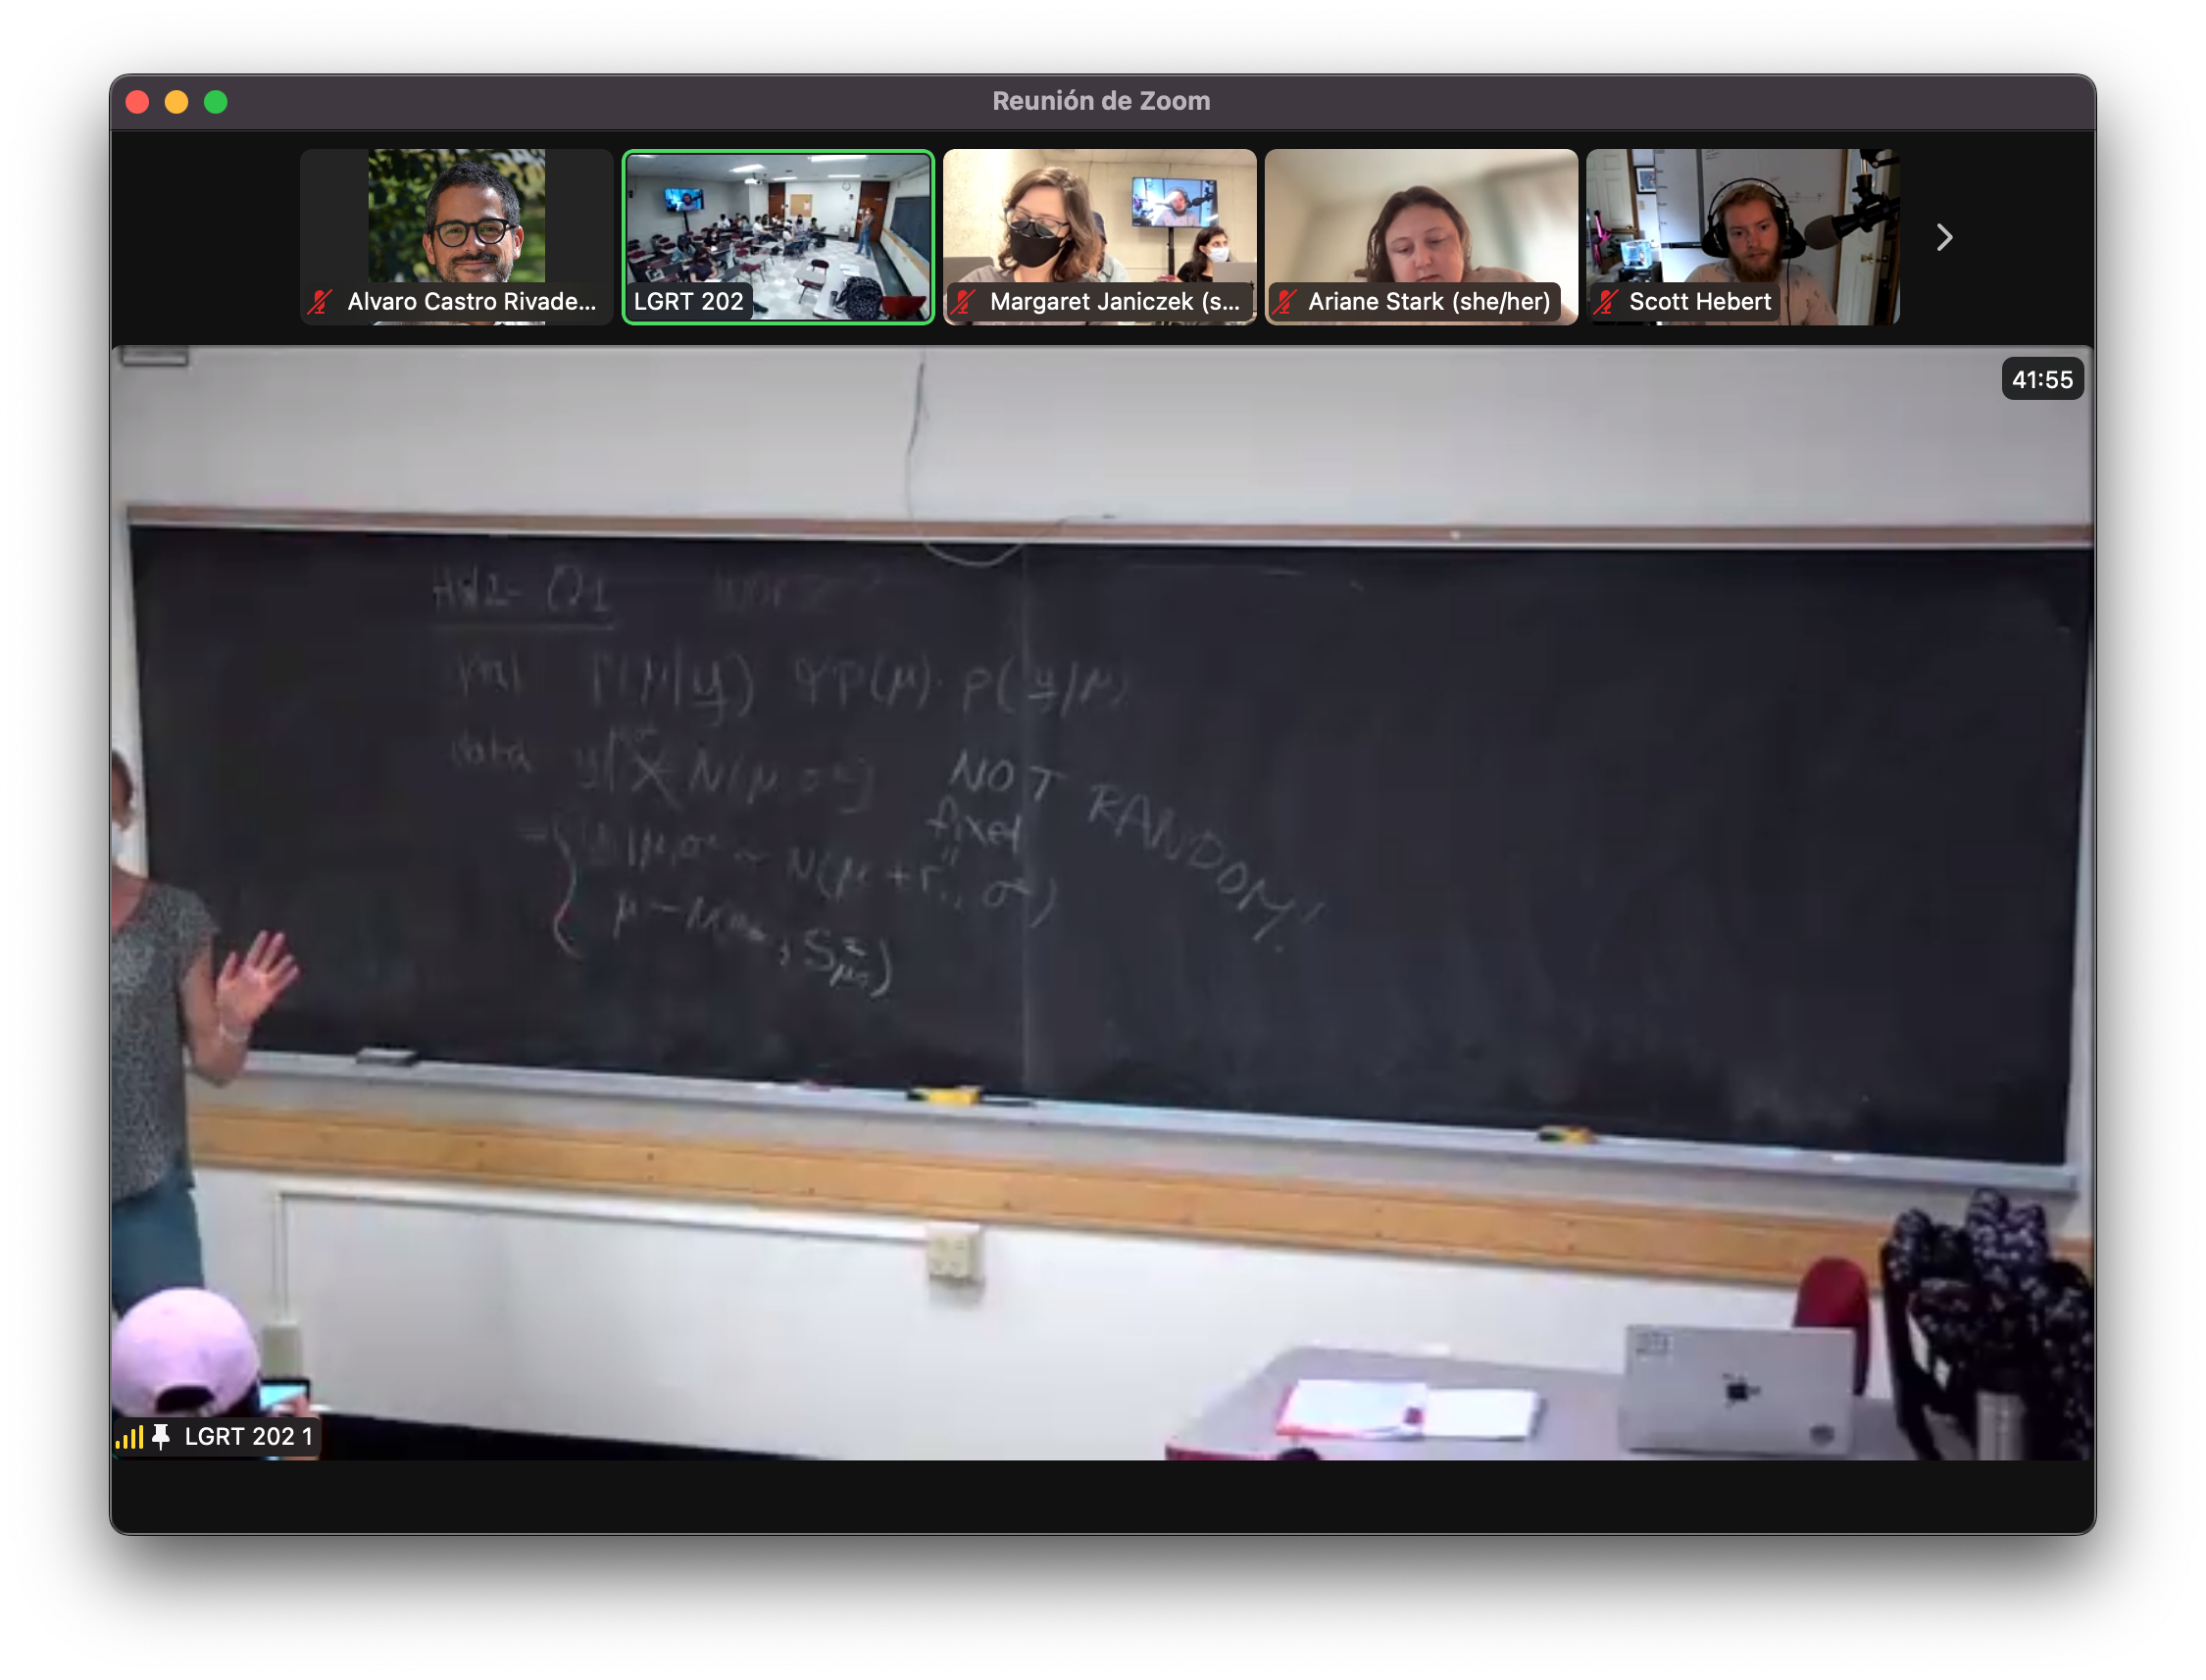 Reunión de Zoom
Alvaro Castro Rivade...
LGRT 202
Margaret Janiczek (s...
Ariane Stark (she/her)
Scott Hebert
41:55
HW2- Q1
P(μ|y) ∝ P(μ) · P(y|μ)
data y| N(μ, σ²)
NOT RANDOM!
fixed
|μ,σ² ~ N(μ + r.., σ²)
μ ~ , S²μ₀)
LGRT 202 1